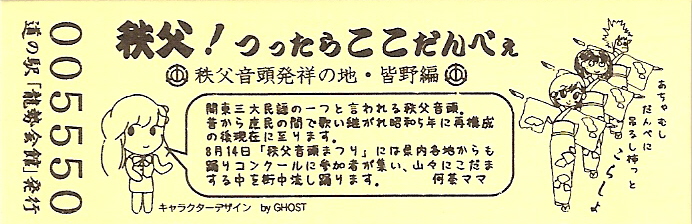 005550
道の駅「龍勢会館」発行
秩父!つったらここだんべぇ
秩父音頭発祥の地・皆野編
関東三大民謡の一つと言われる秩父音頭。
昔から庶民の間で歌い継がれ昭和5年に再構成
の後現在に至ります。
8月14日「秩父音頭まつり」には県内各地からも
踊りコンクールに参加者が集い、山々にこだま
する中を街中流し踊ります。 何茶ママ
キャラクターデザイン by GHOST
あちゃ むし
だんべに
吊るし柿っと
こらしょ